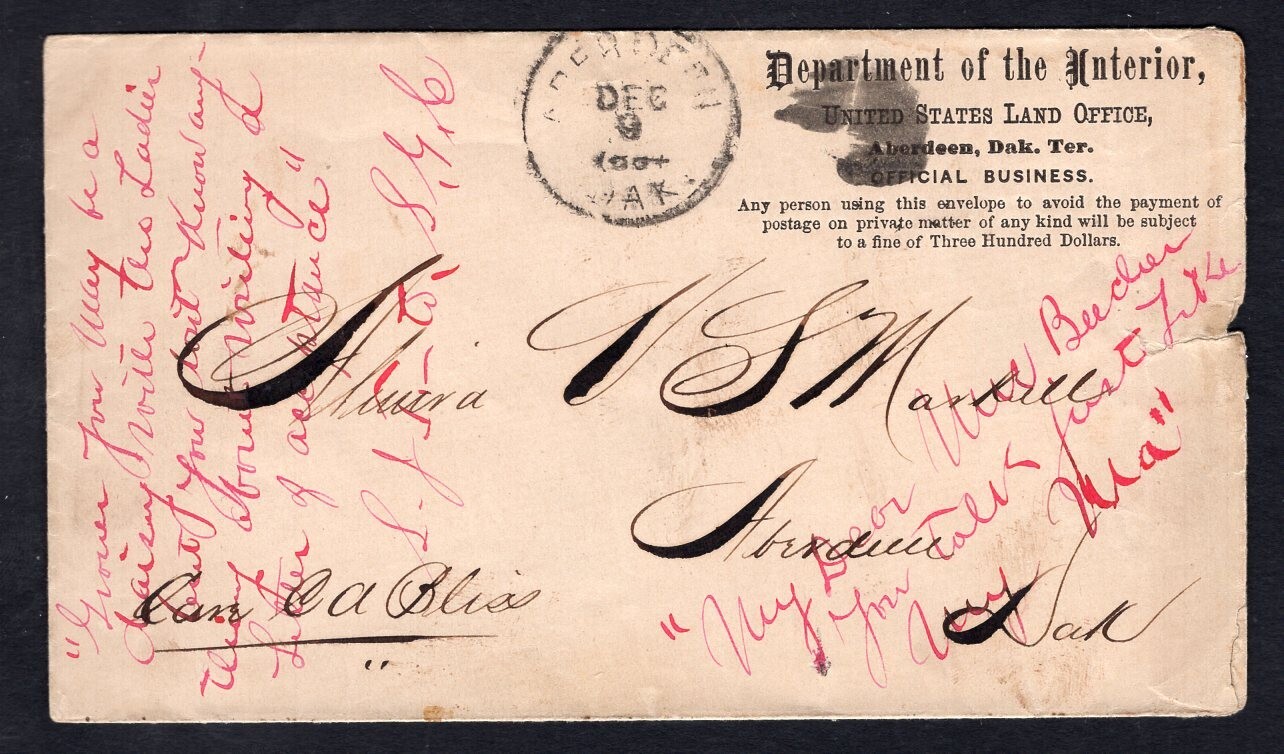 ABERDEEN
DEC
9
1884
DAK.
Department of the Interior,
UNITED STATES LAND OFFICE,
Aberdeen, Dak. Ter.
OFFICIAL BUSINESS.
Any person using this envelope to avoid the payment of
postage on private matter of any kind will be subject
to a fine of Three Hundred Dollars.
V S Martell
Aberdeen
Dak
Care C A Bliss
"
"Grover you may be a
daisy with the Ladies
but you dont know any-
thing about writing a
Letter of acceptance"
"My Dear Mrs Beecher
you talk just like
my Ma"